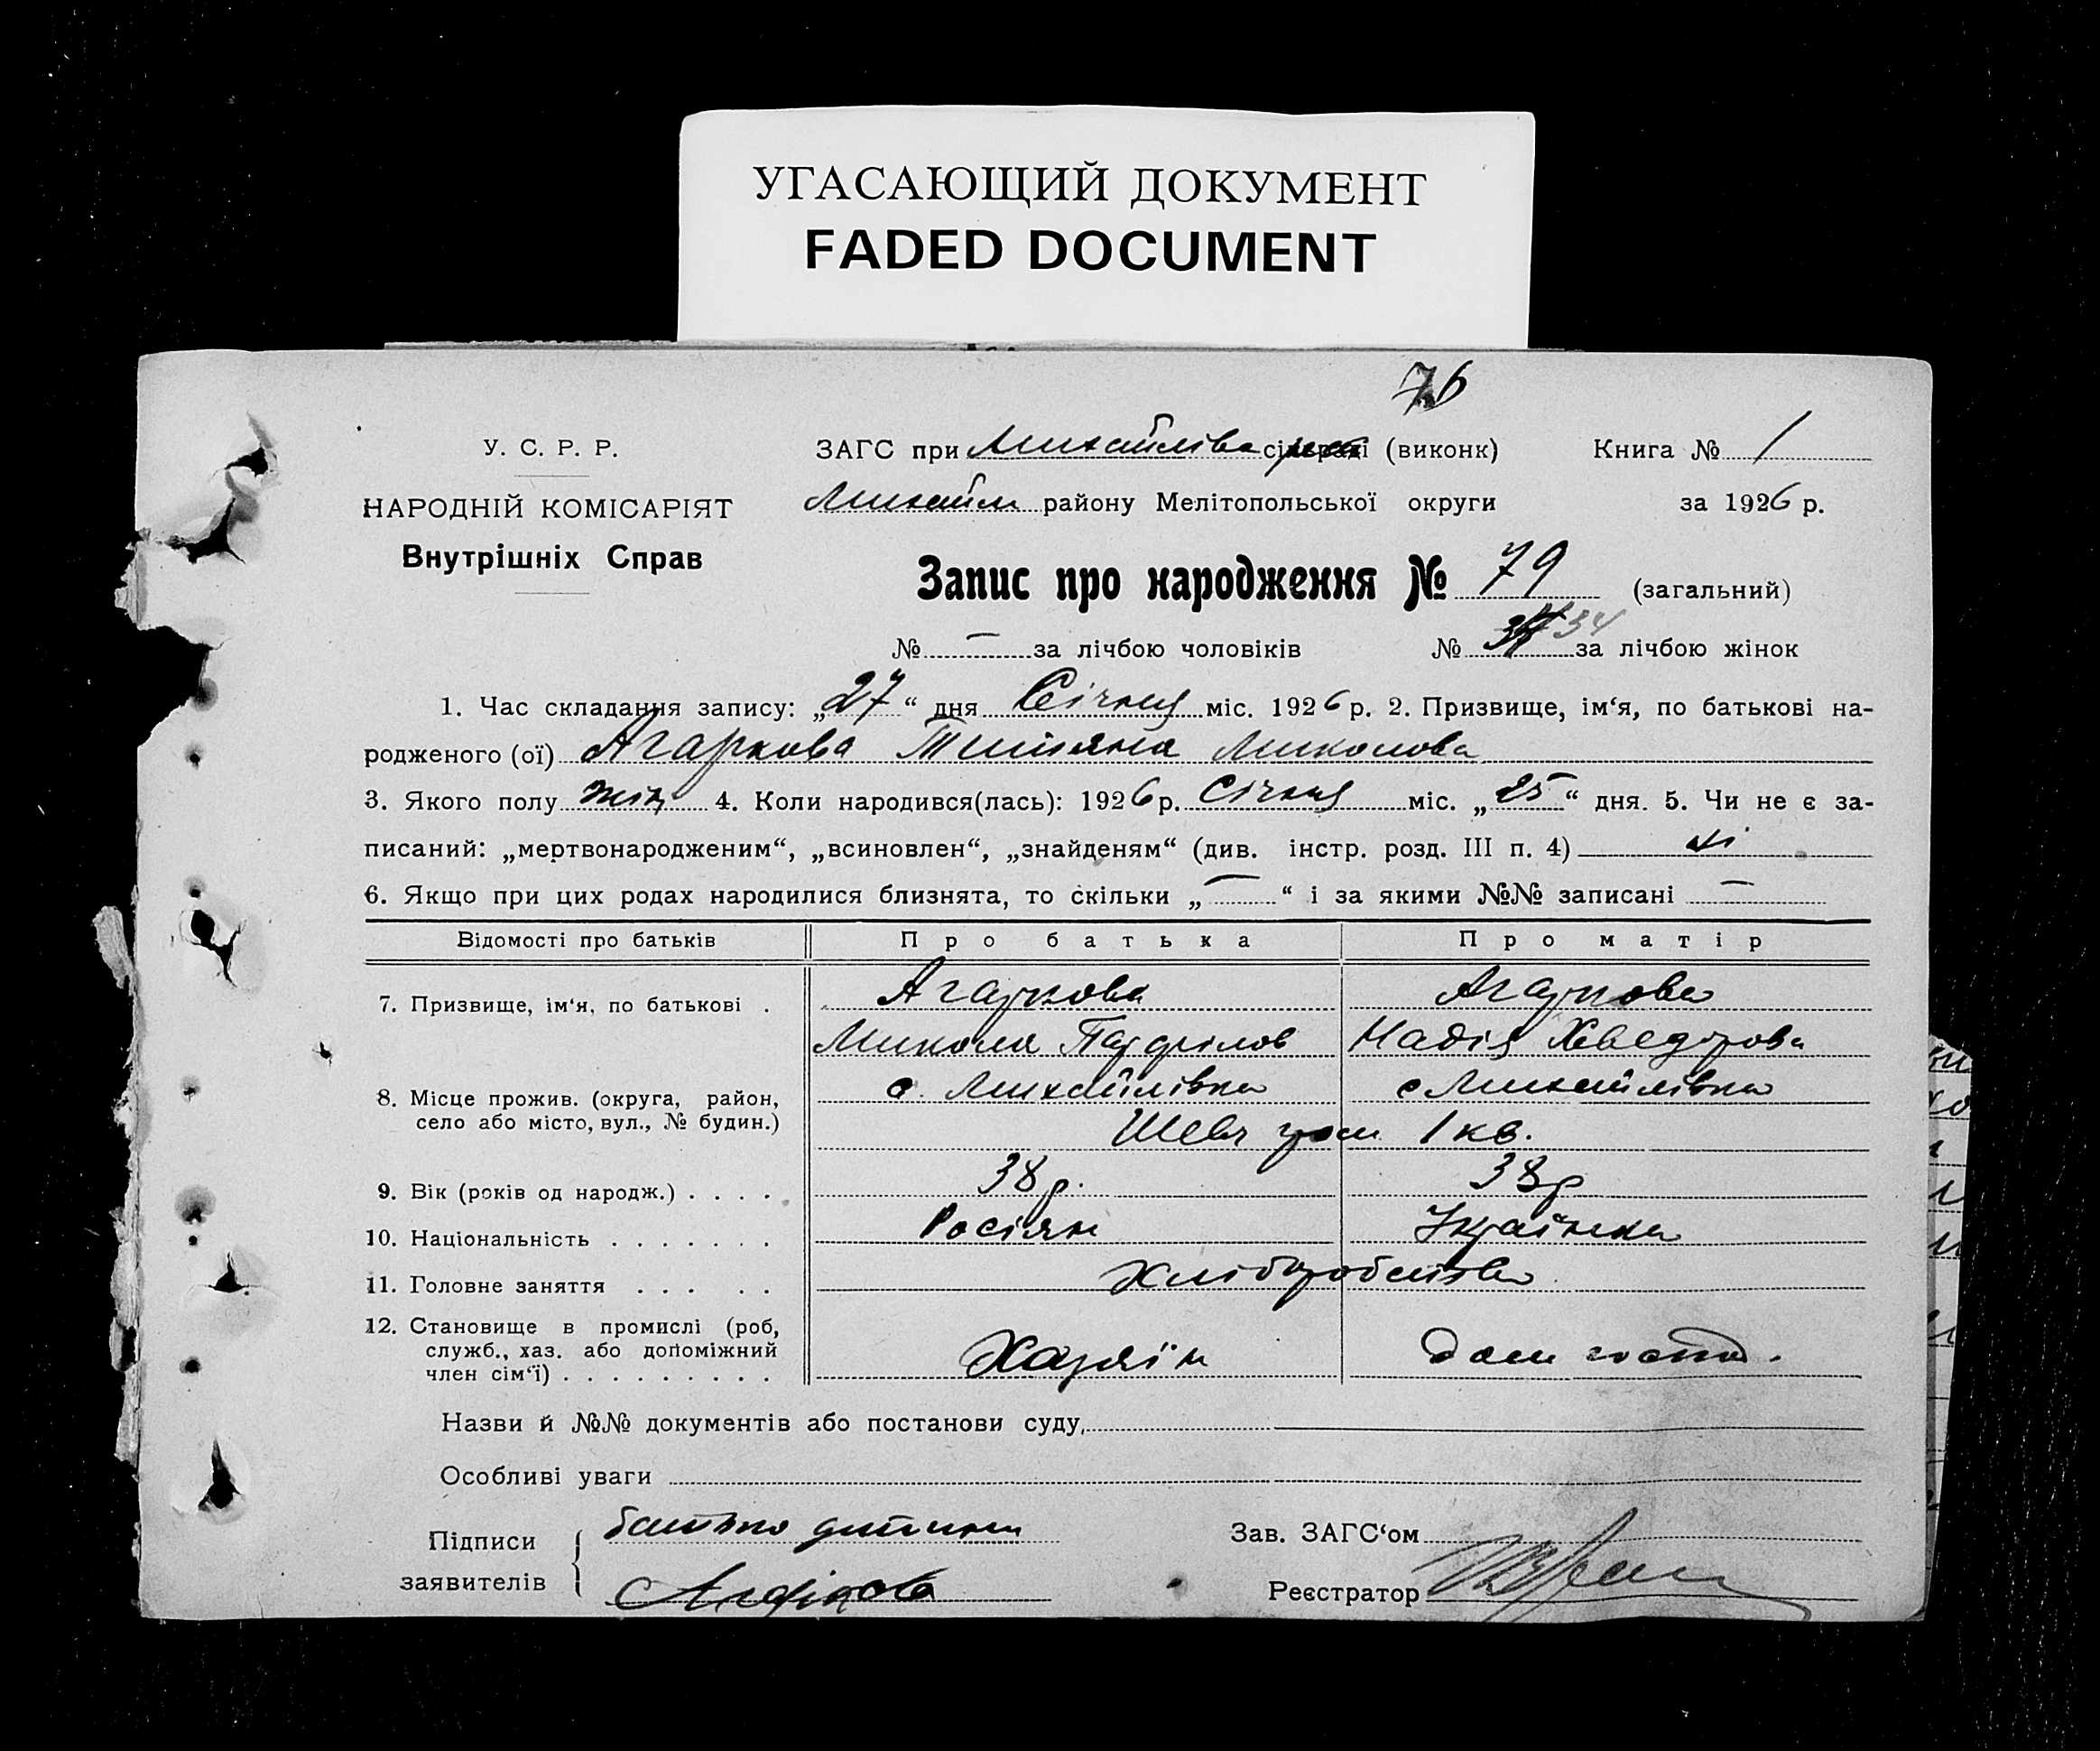 УГАСАЮЩИЙ ДОКУМЕНТ
FADED DOCUMENT
76
У. С. Р. Р.
НАРОДНІЙ КОМІСАРІЯТ
Внутрішніх Справ
ЗАГС при Михайлівс (виконк)
Книга № 1
Михайл району Мелітопольської округи
за 1926 р.
Запис про народження № 79 (загальний)
№ — за лічбою чоловіків № 34 за лічбою жінок
1. Час складання запису: „27“ дня Січня міс. 1926 р. 2. Призвище, ім‘я, по батькові на-
родженого (ої) Агаркова Титяна Миколова
3. Якого полу жін 4. Коли народився(лась): 1926 р. Січня міс. „25“ дня. 5. Чи не є за-
писаний: „мертвонародженим“, „всиновлен“, „знайденям“ (див. інстр. розд. III п. 4) ні
6. Якщо при цих родах народилися близнята, то скільки „—“ і за якими №№ записані —
Відомості про батьків Про батька Про матір
7. Призвище, ім‘я, по батькові . Агаркова Агаркова
Микола Надія Хведорова
8. Місце прожив. (округа, район,
село або місто, вул., № будин.)
с. Михайлівка с Михайлівка
Шевч 1 кв.
9. Вік (років од народж.) . . . . 38 р. 38 р
10. Національність . . . . . . . Росіян Українка
11. Головне заняття . . . . . Хліборобство
12. Становище в промислі (роб,
служб., хаз. або допоміжний
член сім‘ї) . . . . . . . . .
Хазяїн Дом госпо.
Назви й №№ документів або постанови суду
Особливі уваги
Підписи
заявителів
батько дитини
Зав. ЗАГС‘ом
Реєстратор